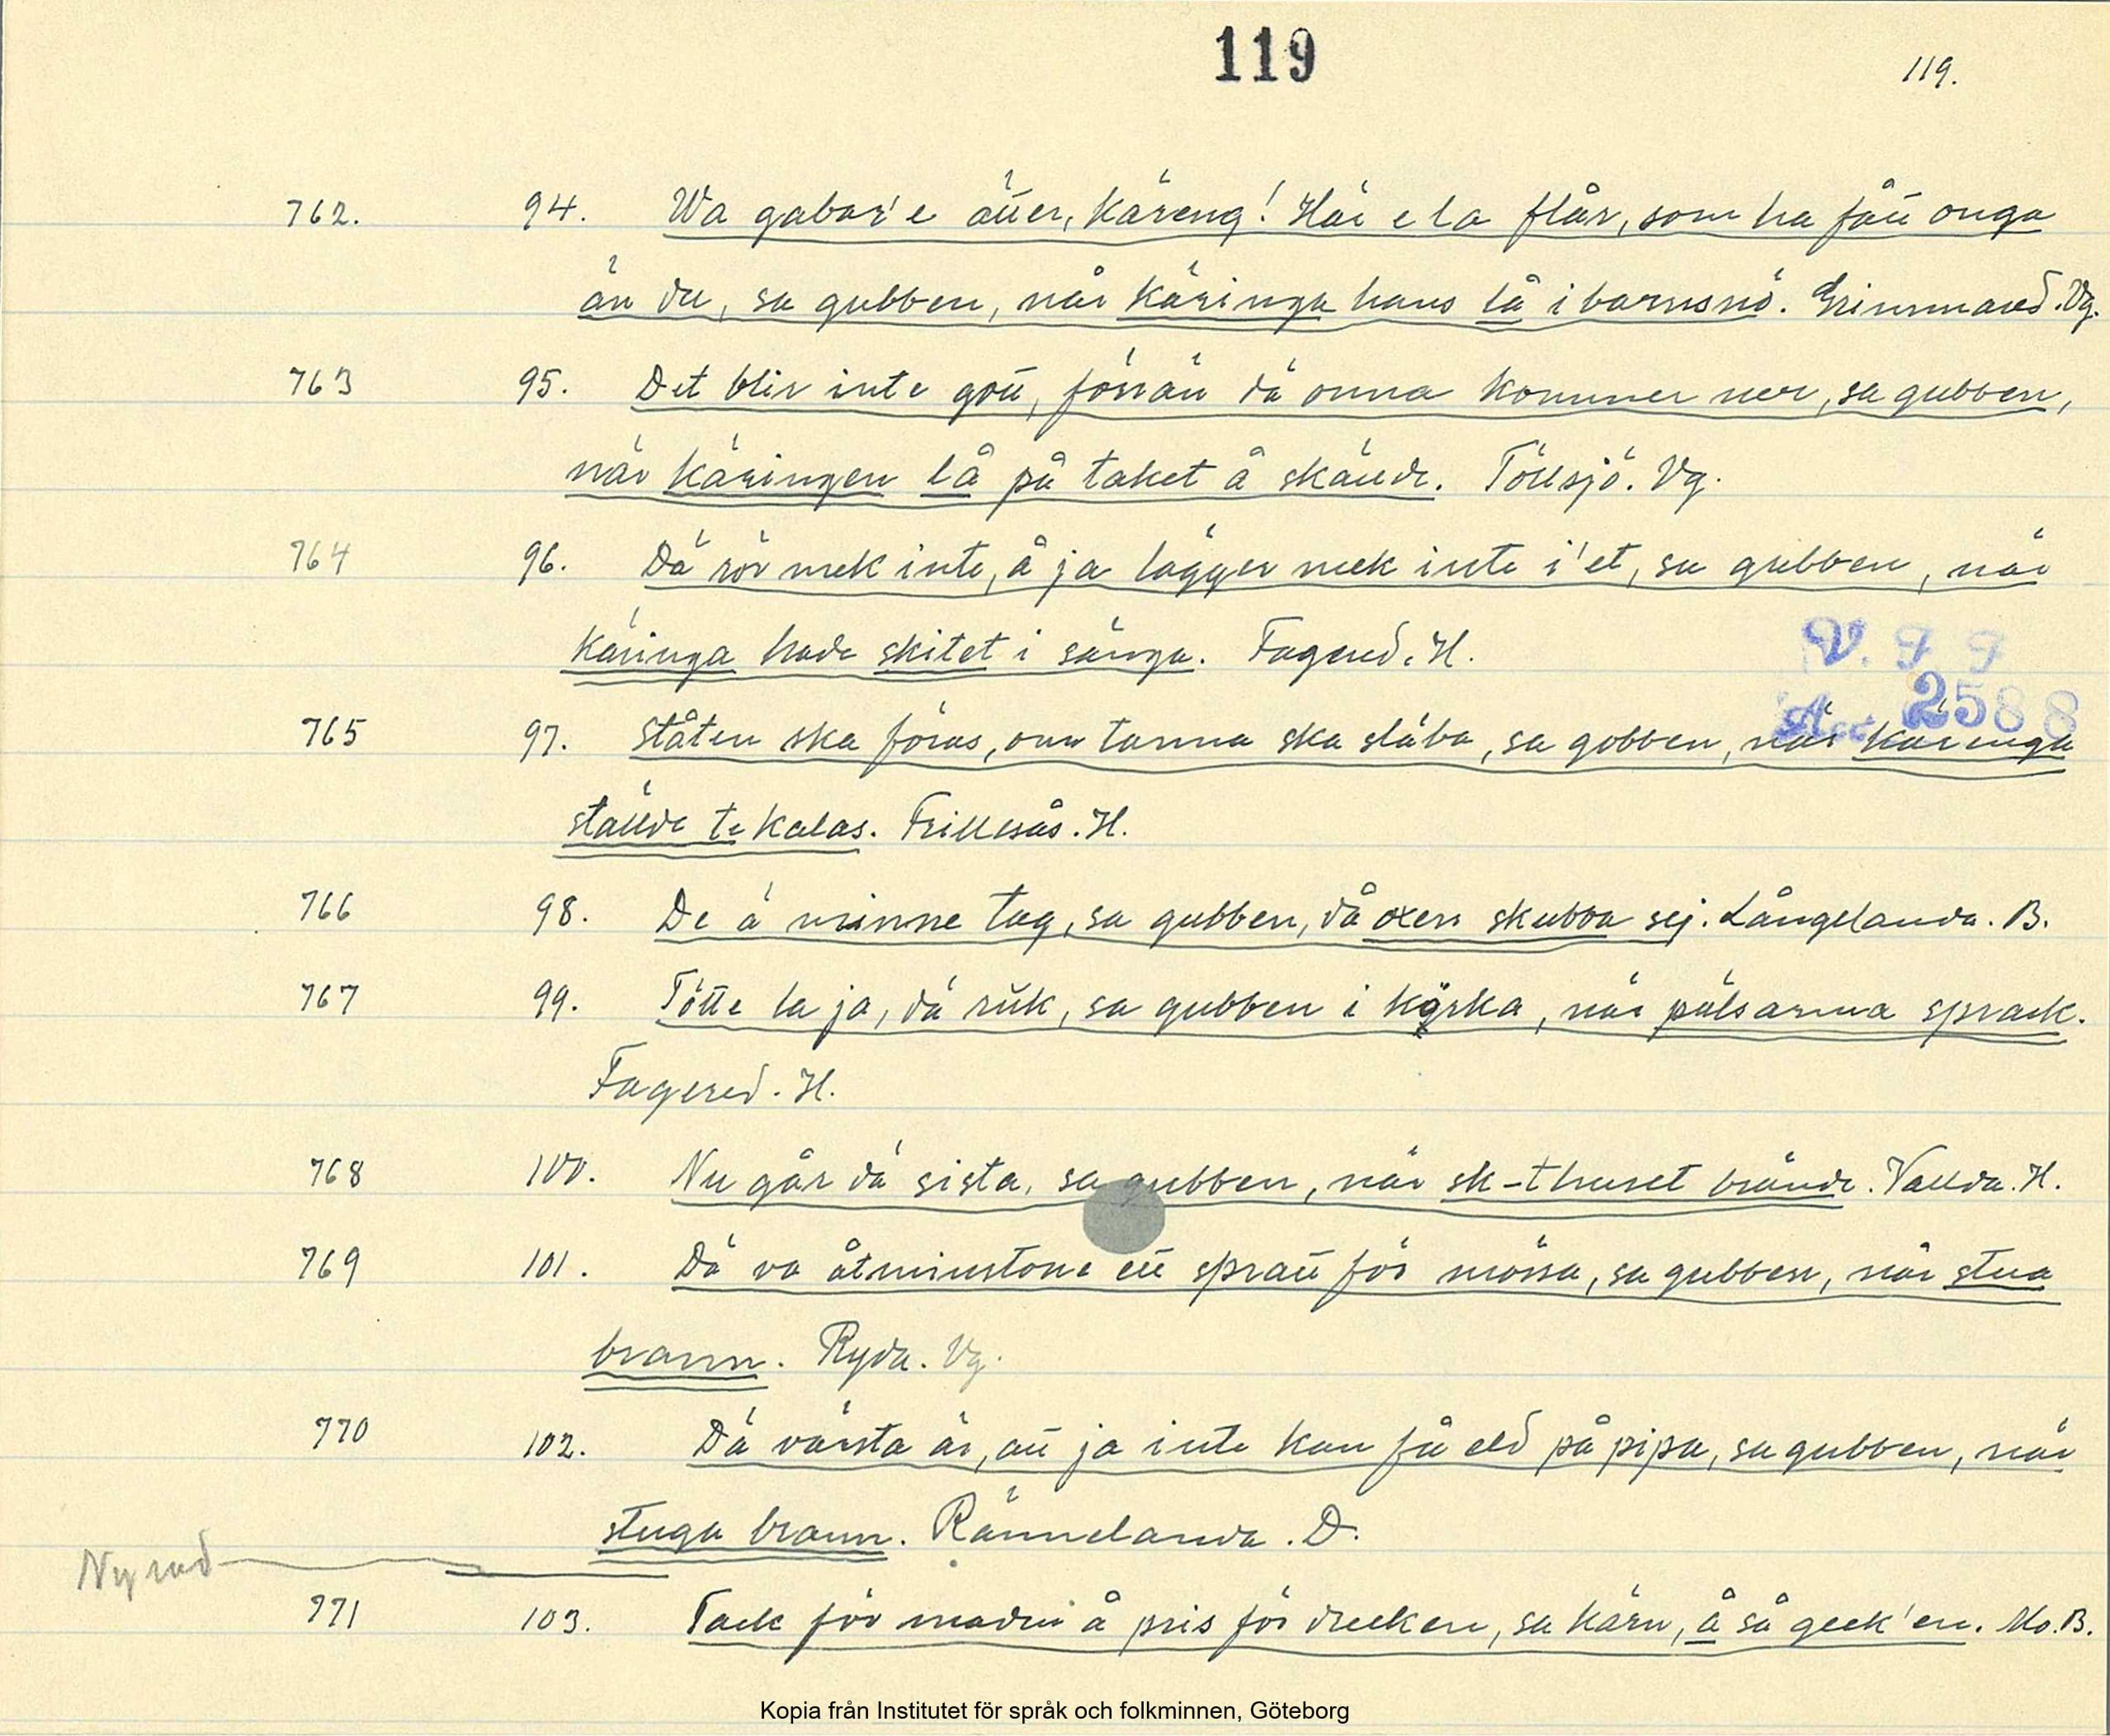 119
119.
762. 94. Wa gabar'e äтter, käreng! Här e la flår, som ha fått onga
än du, sa gubben, når käringa hans lå i barnsnö. Grimmared. Vg.
763 95. Det blir inte gott, förrän dä onna kommer ner, sa gubben,
när käringen lå på taket å skände. Töllsjö. Vg.
764 96. Dä rör mek inte, å ja lägger mek inte i'et, sa gubben, när
käringa hade skitet i sänga. Fagered. H.
V. F F
Acc 2588
765 97. Ståten ska föras, om tarma ska släba, sa gobben, när kärenga
ställde te kalas. Frillesås. H.
766 98. De ä minne tag, sa gubben, då oxen skubba sej. Långelanda. B.
767 99. Tötte la ja, dä rük, sa gubben i körka, när pälsarma sprack.
Fagered. H.
768 100. Nu går dä sista, sa gubben, när sk-thuset brände. Vallda. H.
769 101. Dä va åtminstone ett spratt för mössa, sa gubben, når stua
brann. Ryda. Vg.
770 102. Dä värsta är, att ja inte kan få eld på pipa, sa gubben, när
stuga brann. Rännelanda. D.
Ny rad
771 103. Tack för maden å pris för drecken, sa kärn, å så geck'en. Mo. B.
Kopia från Institutet för språk och folkminnen, Göteborg